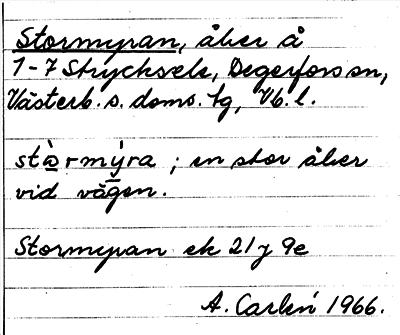 Stormyran, åker å
1-7 Strycksele, Degerfors sn,
Västerb. s. doms. tg, Vb. l.
stàrmýra ; en stor åker
vid vägen.
Stormyran ek 21 J 9e
A. Carlén 1966.